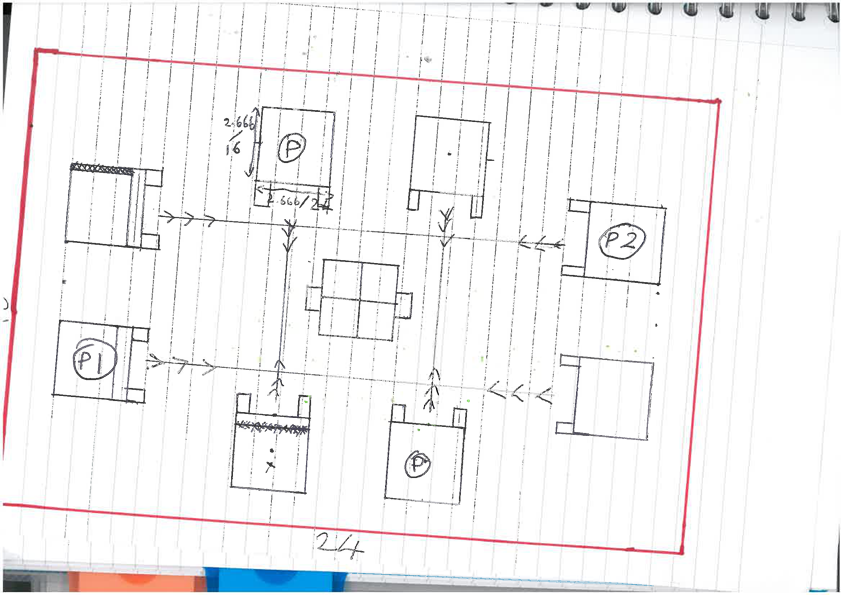 2.666
/
16
P
2.666/24
P2
P1
x
P
24